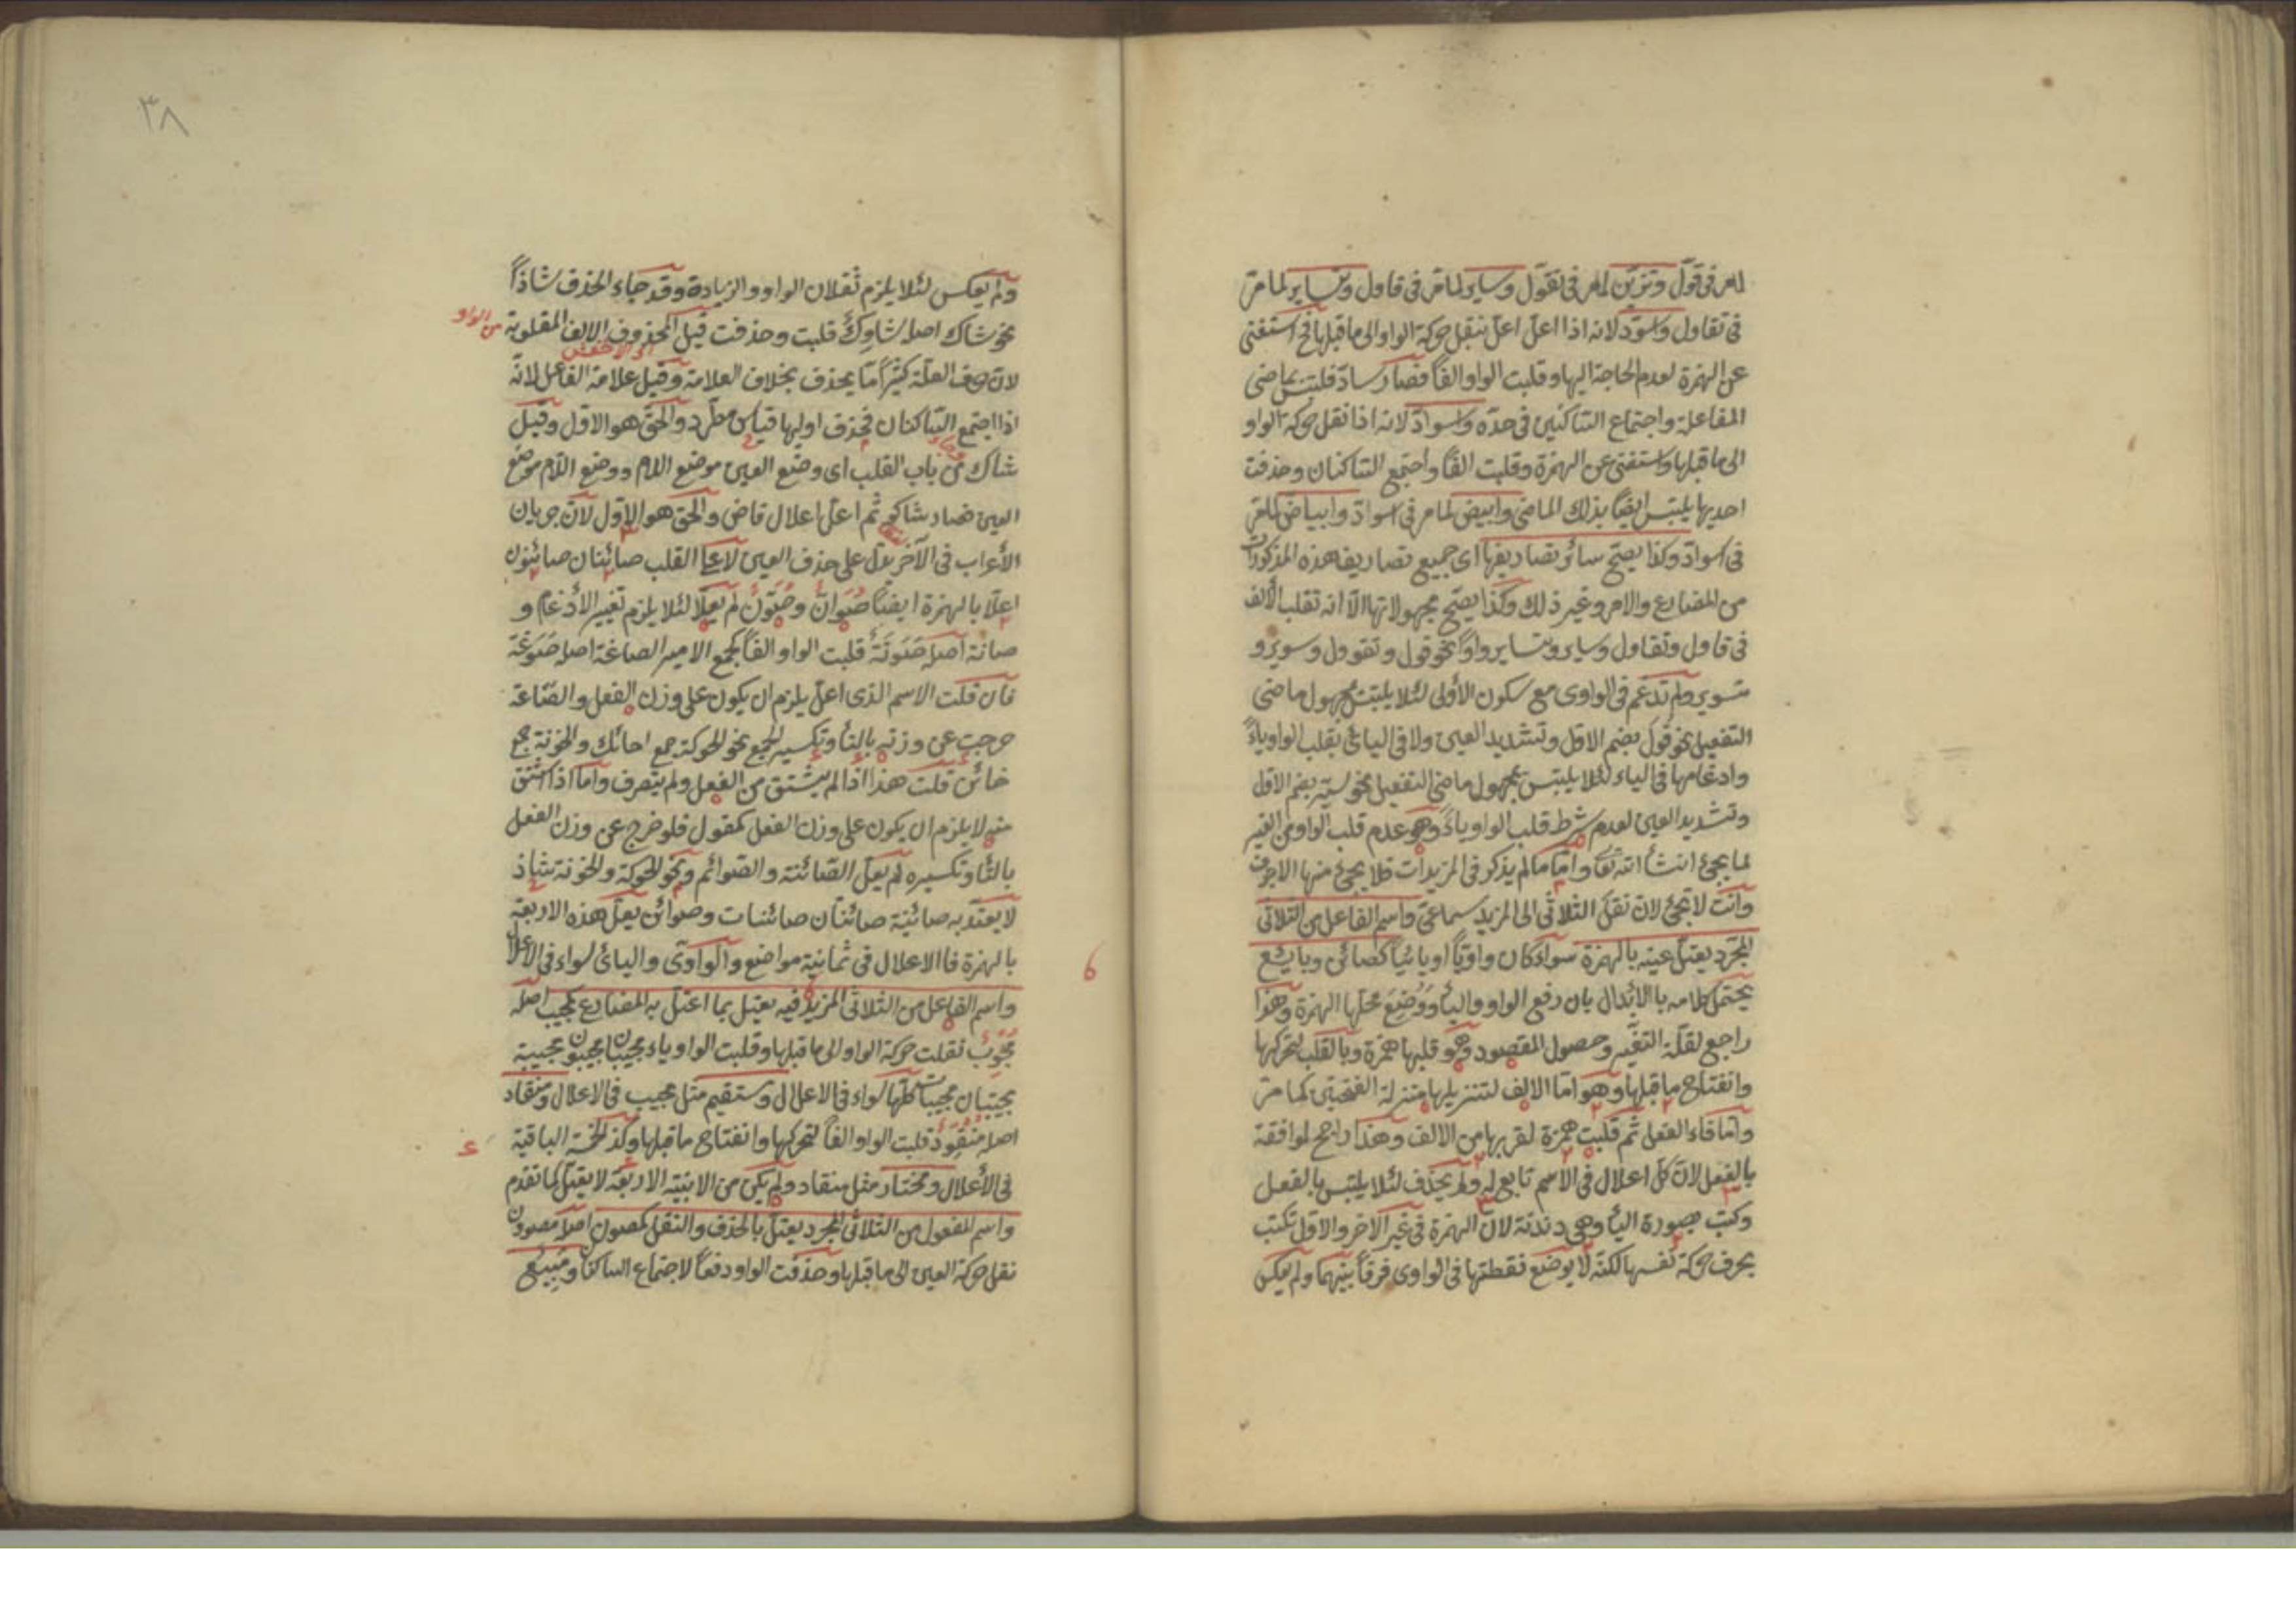 لما مر في قوّل وتزيّن لما مر في تقوّل وساير لما مرّ في قاول وتساير لما مرّ
في تقاول واسودّ لانه اذا اعلّ اعلّ بنقل حركة الواو الى ما قبلها فح استغنى
عن الهمزة لعدم الحاجة اليها وقلبت الواو الفاً فصار سادّ فلتبس بماضى
المفاعلة واجتماع الساكنين في حدّه واسوادّ لانه اذا نقل حركة الواو
الى ما قبلها واستغنى عن الهمزة وقلبت الفاً واجتمع الساكنان وحذفت
احديها يلتبس ايضاً بذلك الماضى وابيض لما مر في اسوادّ وابياضّ لما مرّ
في اسوادّ وكذا يصحّ سائر تصاريفها اى جميع تصاريف هذه المذكورات
من المضارع والامر وغير ذلك وكذا يصحّ مجهولاتها الّا انه تقلب الألف
في قاول وتقاول وساير وتساير واواً نحو قوول وتقوول وسوير و
تسوير ولم تدغم في الواوى مع سكون الأولى لئلا يلتبس بمجهول ماضى
التفعيل نحو قوّل بضم الاول وتشديد العين ولا في اليائى بقلب الواو ياءً
وادغامها في الياء لئلا يلتبس بمجهول ماضى التفعيل نحو سيّر بضم الاول
وتشديد العين لعدم شرط قلب الواو ياءً وهو عدم قلب الواو من الغير
لما يجئ انشأ الله تعا وامّا ما لم يذكر في المزيدات فلا يجئ منها الاجوف
وانت لا تجئ لان نقل الثلاثى الى المزيد سماعىّ واسم الفاعل من الثلاثى
المجرّد يعتلّ عينه بالهمزة سواء كان واويّاً او يائيّاً كصائن وبايع
يحتمل كلامه بالأبدال بان رفع الواو والياء ووُضِعَ محلّها الهمزة وهذا
راجع لقلّة التغيّر وحصول المقصود وهو قلبها همزة وبالقلب لتحركها
وانفتاح ما قبلها وهو اما الالف لتنزيلها منزلة الفتحتى كما مرّ
وامّا فاء الفعل ثم قلبت همزة لقربها من الالف وهذا راجح لموافقة
بالفعل لانّ كلّ اعلال في الاسم تابع له ولم يحذف لئلا يلتبس بالفعل
وكتب بصورة الياء وهى دندنة لان الهمزة في غير الاخر والاوّل تكتب
بحرف حركة نفسها لكنّه لا يوضع نقطتها في الواوى فرقاً بينهما ولم يعكس
٣٨
ولم يعكس لئلا يلزم ثقلان الواو والزيادة وقد جاء الحذف شاذاً
نحو شاك اصله شاوِكٌ قلبت وحذفت قيل المحذوف الالف المقلوبة
من الواو
لان حرف العلّة كثيراً مّا يحذف بخلاف العلامة وقيل علامة الفاعل لانّه
اى الاخفش
اذا اجتمع الساكنان فحذف اولهما قياس مطّرد والحقّ هو الاول وقيل
شاك من باب القلب اى وضع العين موضع اللام ووضع اللام موضع
العين فصار شاكو ثم اعلّ اعلال قاض والحق هو الاول لانّ جريان
الأعراب في الآخر يدلّ على حذف العين لا على القلب صائنان صائنون
اعلّا بالهمزة ايضاً صُوَّانٌ وصُوَّنٌ لم يعلّا لئلا يلزم تغيير الأدغام و
صانة اصله صَوَنَةٌ قلبت الواو الفاً كجمع الامير الصاغة اصله صَوَغَة
فان قلت الاسم الذى اعلّ يلزم ان يكون على وزن الفعل والصّاغة
خرجت عن وزنه بالتأ وتكسير الجمع نحو الحوكة جمع احائك والخونة جمع
خائن قلت هذا اذا لم يشتق من الفعل ولم يتصرف واما اذا اشتق
منه لا يلزم ان يكون على وزن الفعل كمقول فلو خرج عن وزن الفعل
بالتأ وتكسيره لم يعلّ الصّائنة والصّوائم ونحو الحوكة والخونة شاذ
لا يعتدّ به صائنة صائنتان صائنات وصوائن يعلّ هذه الاربعة
بالهمزة فاالاعلال في ثمانية مواضع والواوىّ واليائ سواء في الاعلال
6
واسم الفاعل من الثلاثى المزيد فيه يعتل بما اعتل به المضارع كمجيب اصله
مُجْوِبٌ نقلت حركة الواو الى ما قبلها وقلبت الواو ياء مجيبان مجيبون مجيبة
مجيبتان مجيبات كلّها سواء في الاعلال ومستقيم مثل مجيب في الاعلال ومنقاد
اصله مُنْقَوِدٌ قلبت الواو الفاً لتحركها وانفتاح ما قبلها وكذ الخمسة الباقية
في الأعلال ومختار مثل منقاد ولم يكن من الابنية الاربعة لا يعتلّ كما تقدم
واسم المفعول من الثلاثى المجرد يعتلّ بالحذف والنقل كمصون اصله مصوون
نقل حركة العين الى ما قبلها وحذفت الواو دفعاً لاجتماع الساكنان ومَبيع